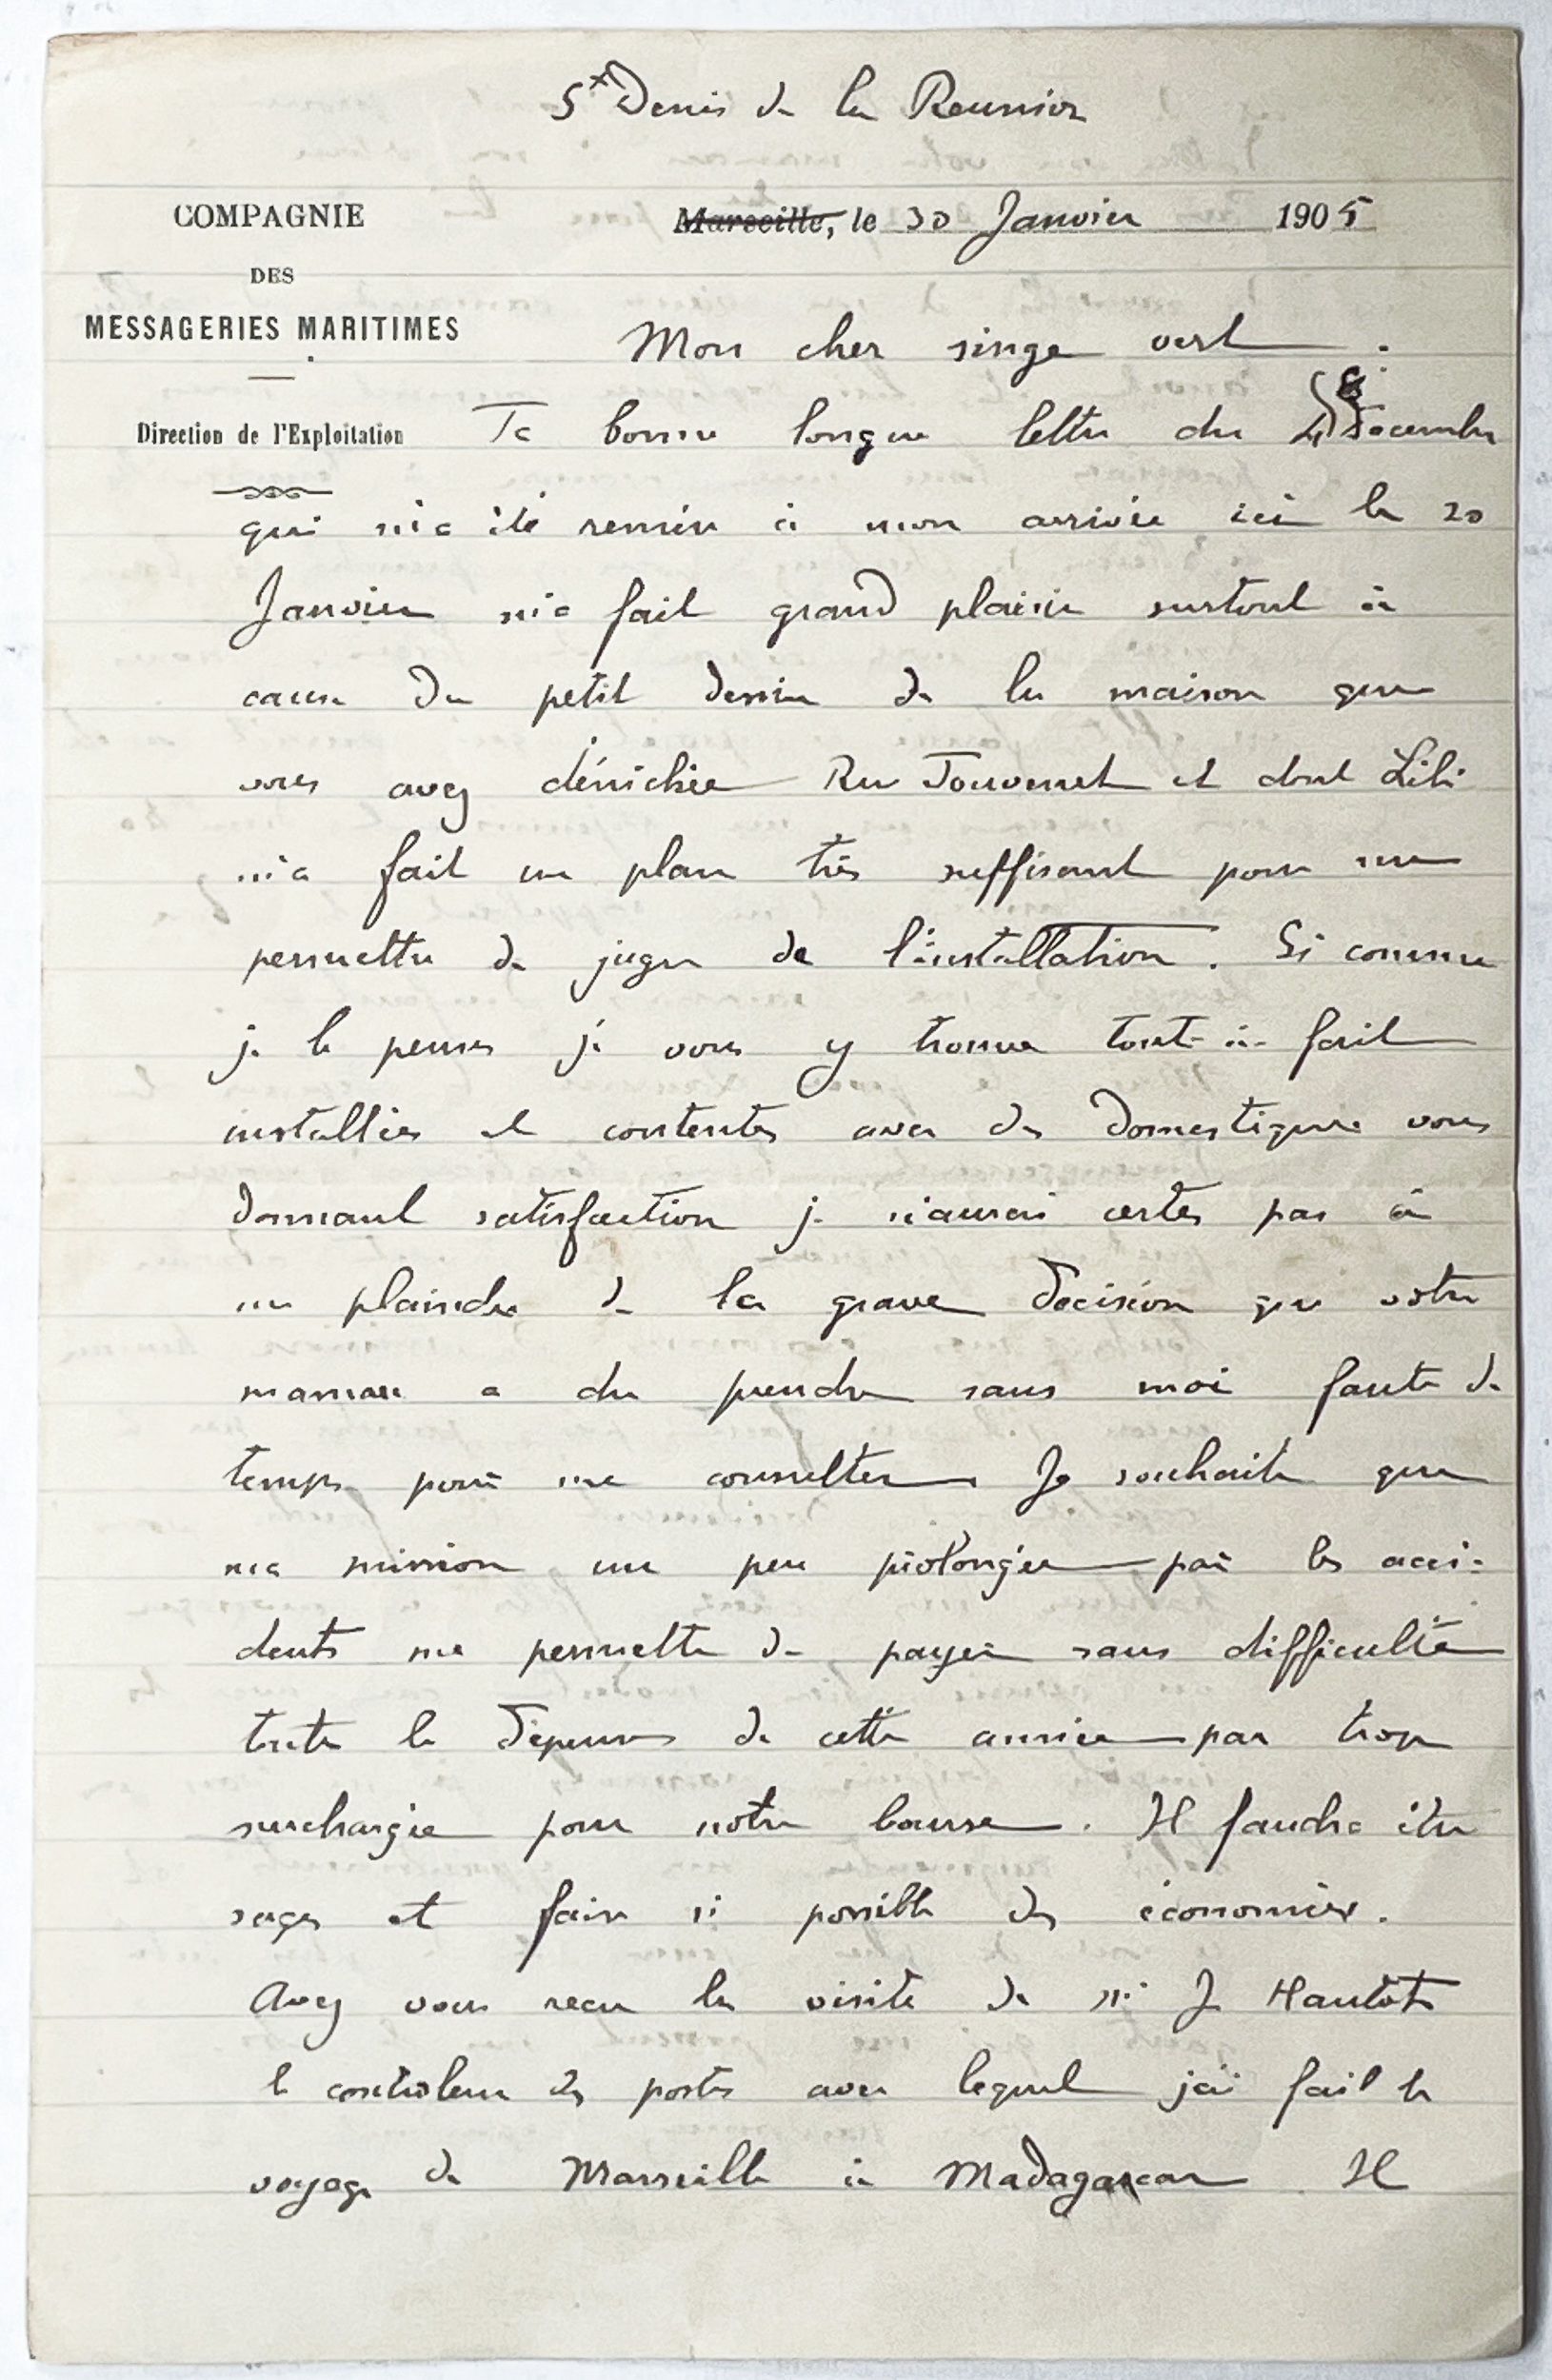 St Denis de la Reunion
COMPAGNIE
DES
MESSAGERIES MARITIMES
Direction de l'Exploitation
Marseille, le 30 Janvier 1905
Mon cher singe vert.
Ta bonne longue lettre du Decembre
qui m'a été remise à mon arrivée ici le 20
Janvier m'a fait grand plaisir surtout à
cause du petit dessin de la maison que
vous avez dénichée Rue Jouvenet et dont Lili
m'a fait un plan très suffisant pour me
permettre de juger de l'installation. Si comme
je le pense je vous y trouve tout-à-fait
installées et contentes avec des domestiques vous
donnant satisfaction je n'aurai certes pas à
me plaindre de la grave décision que votre
maman a du prendre sans moi faute de
temps pour me consulter. Je souhaite que
ma mission un peu prolongée par les acci-
dents me permette de payer sans difficulté
toutes les dépenses de cette année par trop
surchargée pour notre bourse. Il faudra être
sages et faire si possible des économies.
Avez vous reçu la visite de Mr J Hautôt
le contrôleur des postes avec lequel j'ai fait le
voyage de Marseille à Madagascar Il